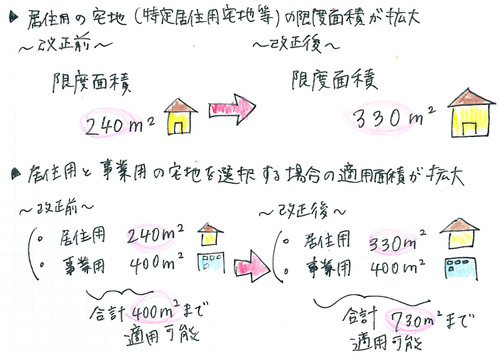 ▶ 居住用の宅地（特定居住用宅地等）の限度面積が拡大
～改正前～ ～改正後～
限度面積 限度面積
240m² 330m²
▶ 居住用と事業用の宅地を選択する場合の適用面積が拡大
～改正前～ ～改正後～
・居住用 240m² ・居住用 330m²
・事業用 400m² ・事業用 400m²
合計400m²まで 合計730m²まで
適用可能 適用可能